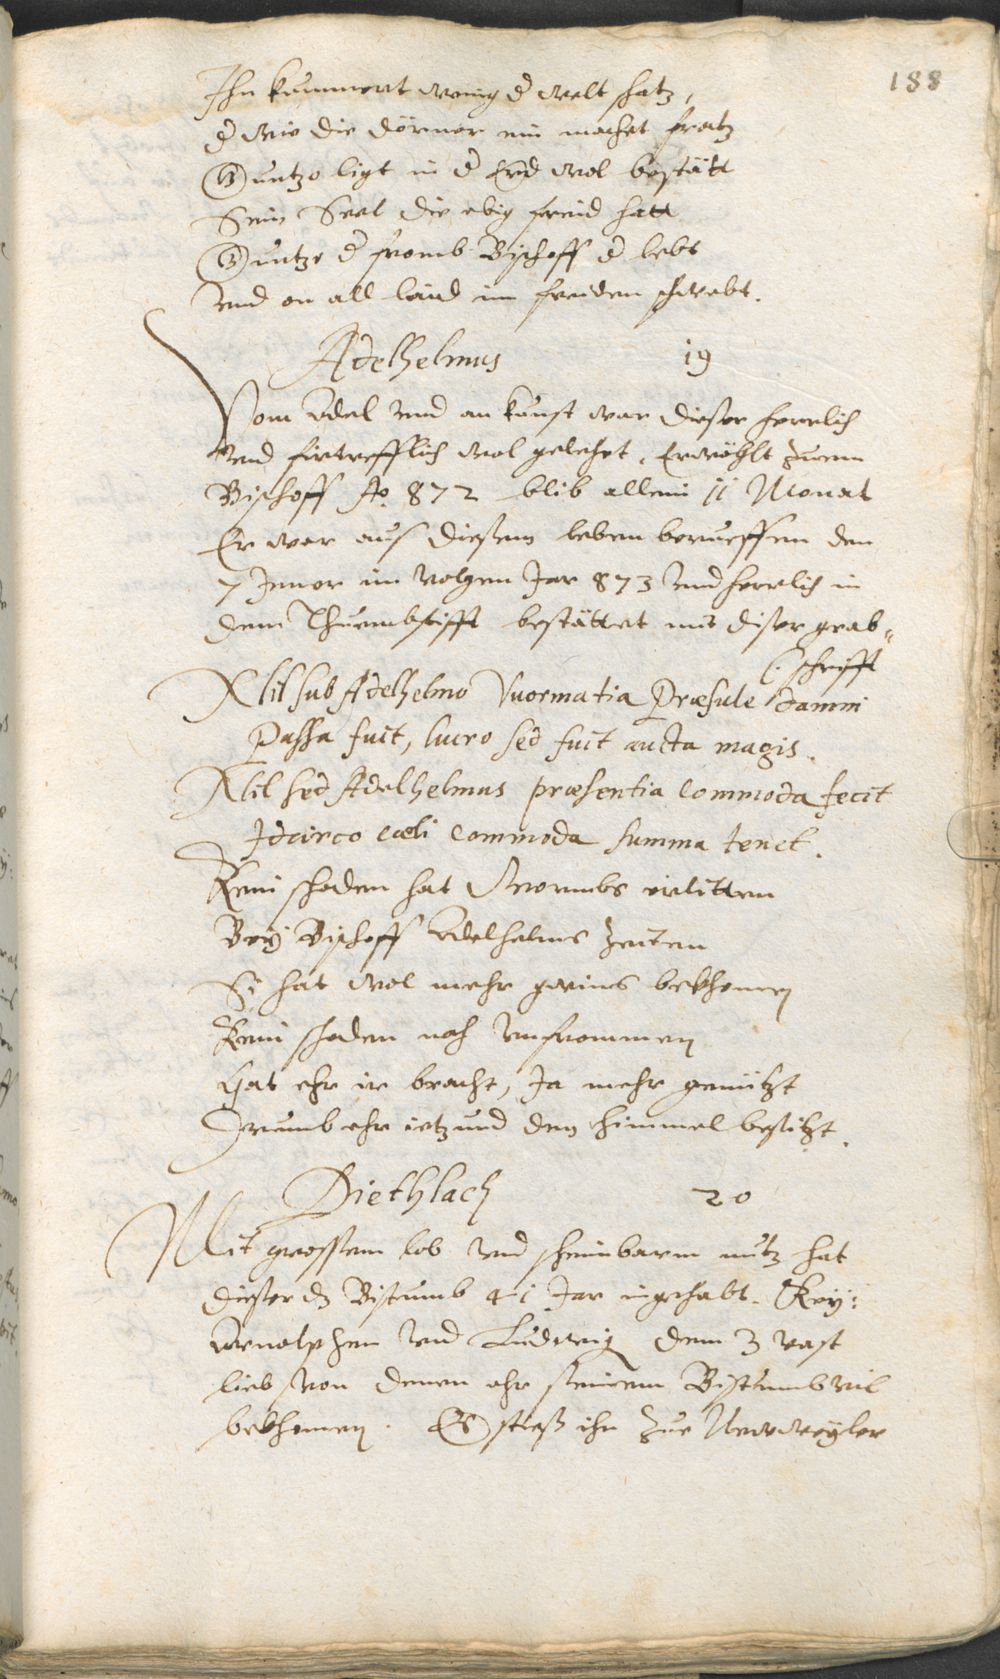 188
Ihn kummert wenig d welt schatz,
d wie die dörner ein machet fratz
Guntzo ligt in d Erd wol bestätt
Sein Seel die ebig freid hatt
Guntzo d fromb Bischoff d lebt
und on all laid im freiden schwebt.
Adelhelmus 19
Vom Adel und an kunst war dieser herrlich
und firtrefflich wol gelehrt, Erwöhlt zuem
Bischoff Ao. 872 blib allein 11 Monat
Er war auß diesem leben berueffen den
7 Jenner im volgen Jar 873 und herrlich in
dem Thuembstifft bestättet mit diser grab-
schrifft
Nil sub Adelhelmo Vuormatia Præsule damni
Passa fuit, lucro sed fuit aucta magis.
Nil sed Adelhelmus præsentia commoda fecit
Idcirco cæli commoda summa tenet.
Kein schaden hat Wormbs erlitten
Bey Bischoff Adelhelms Zeiten
Si hat wol mehr gwins bekhomen
Kein schaden noch unfrommen
Hat ehr ir bracht, Ja mehr genützt
Drumb ehr ietzund den himmel besitzt.
Diethlach 20
Mit grossem lob und scheinbarem nutz hat
dieser dz Bistumb 41 Jar ingehabt. Key:
Arnolphen und Ludwig dem 3 vast
lieb von denen ehr seinem Bistumb vil
bekhomen. Es stieß ihn zue Newweyler